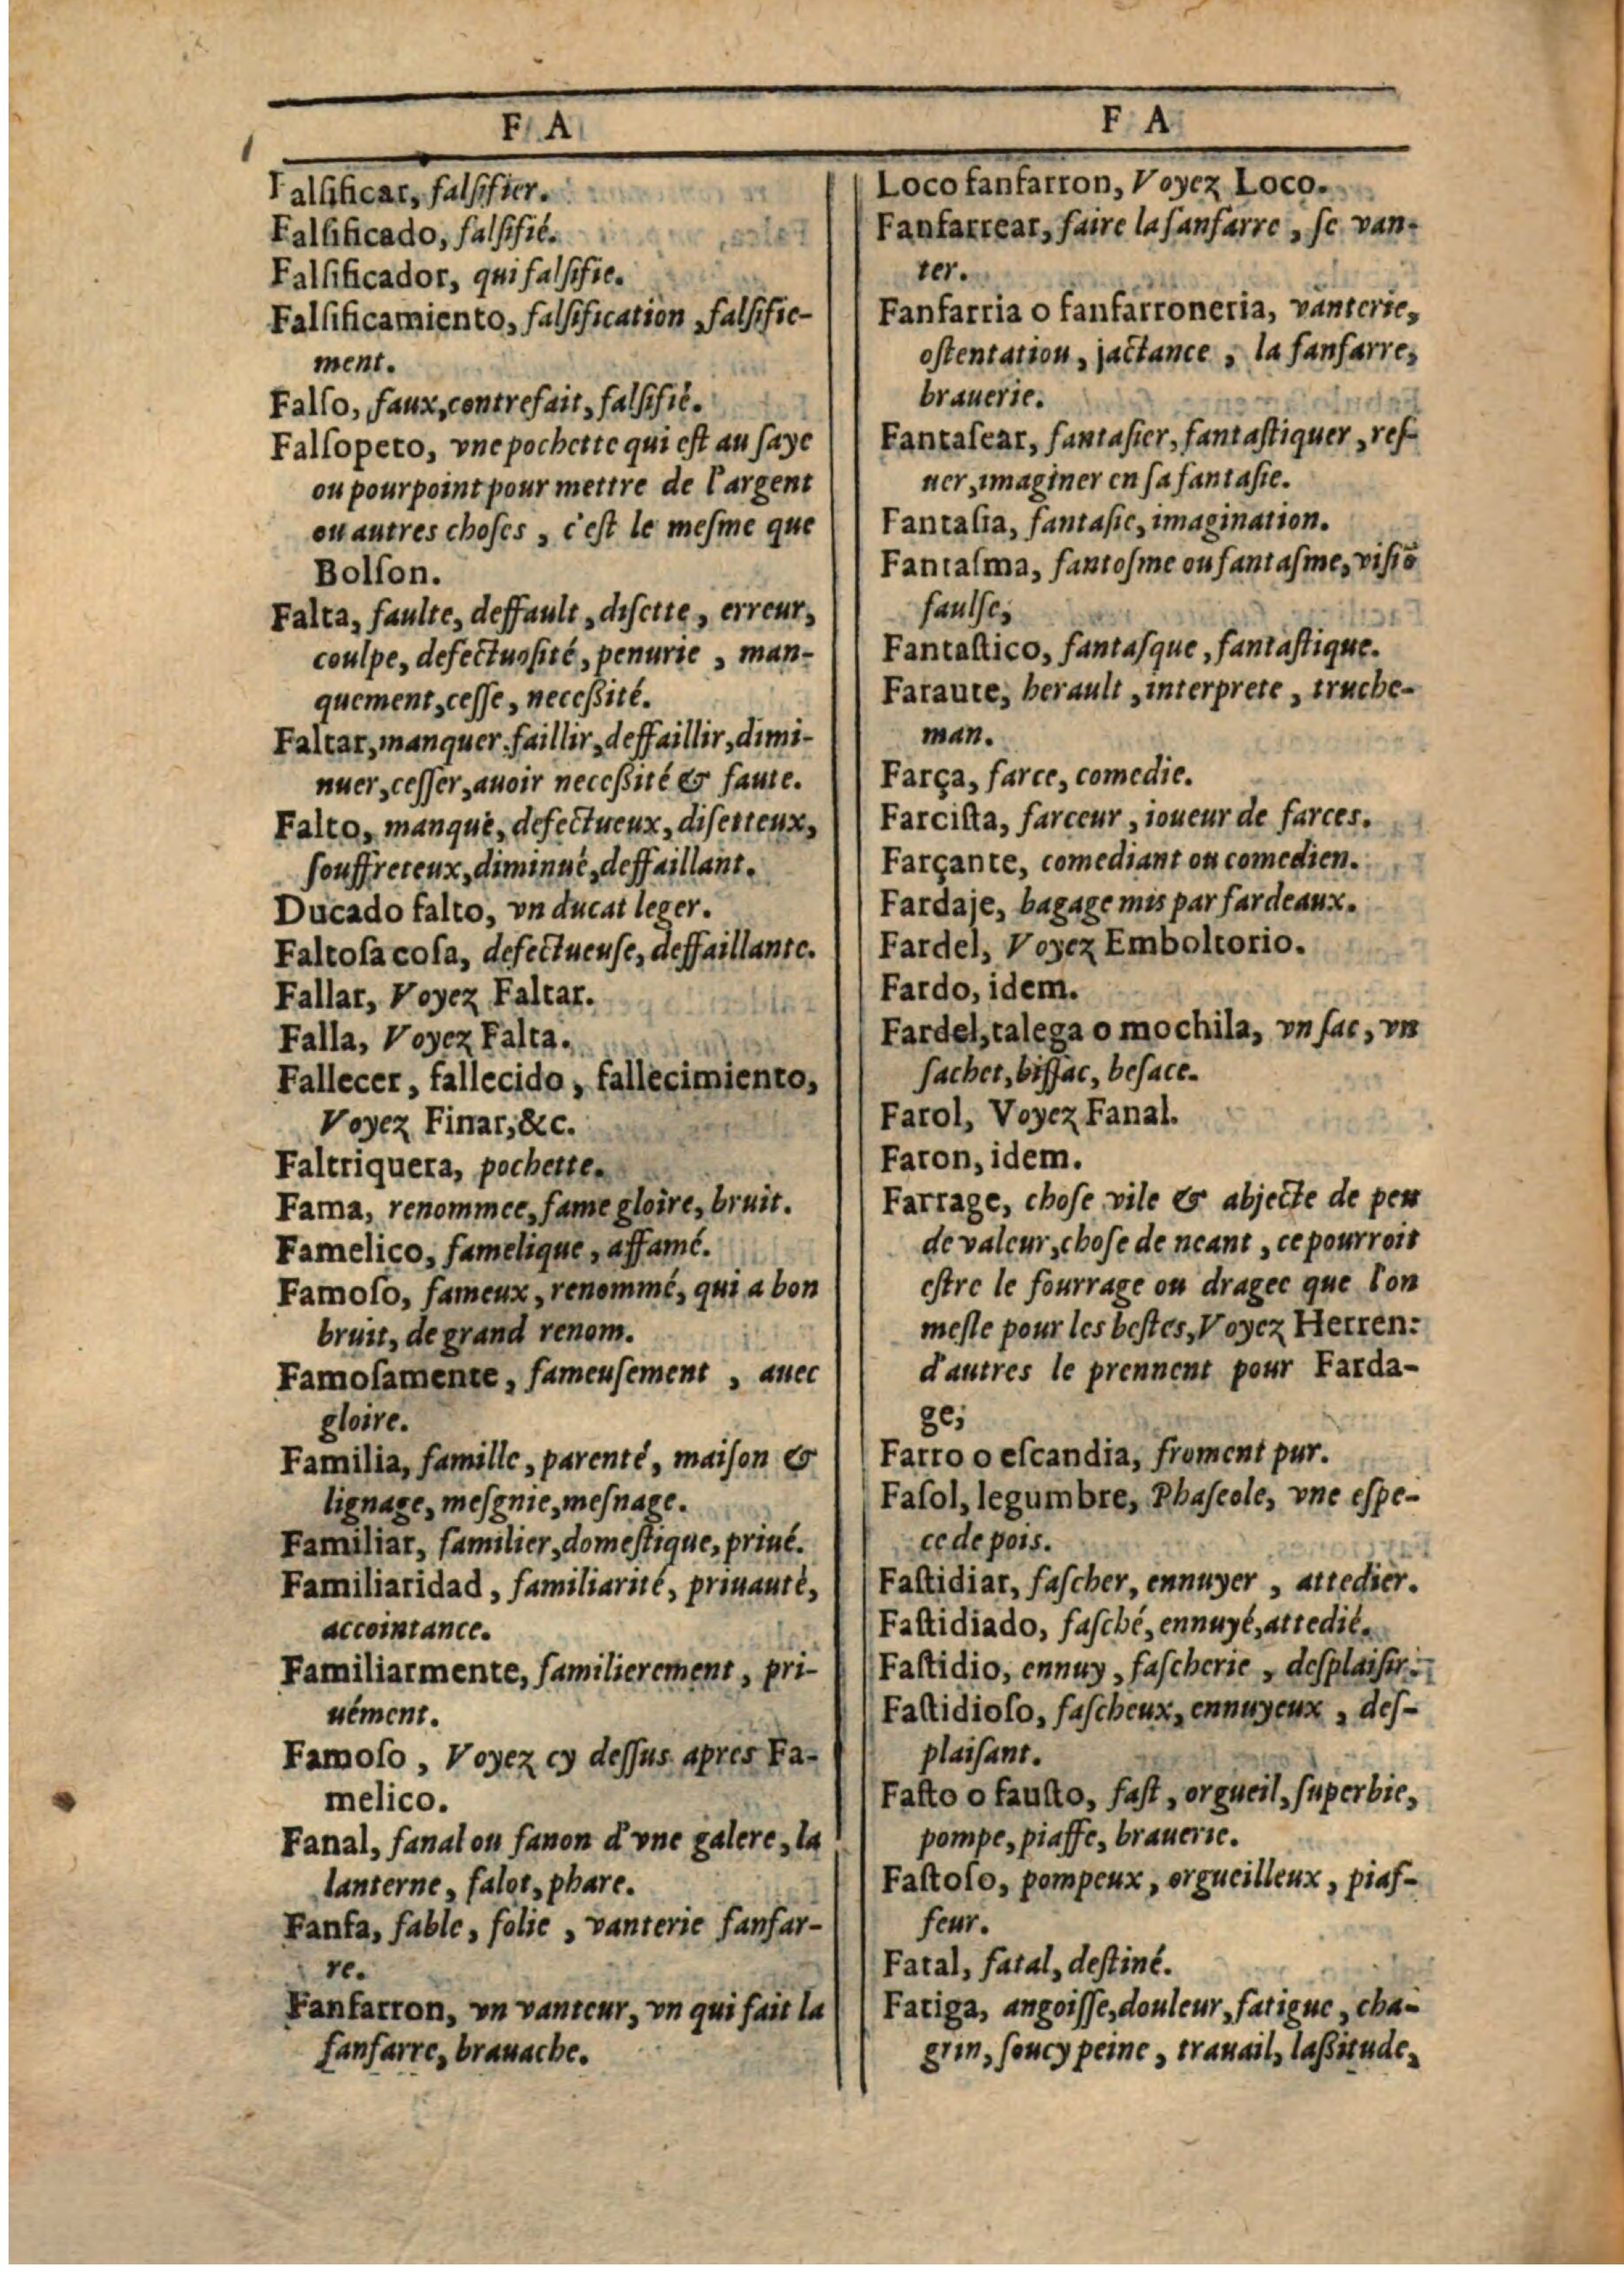 F A
Falſificar, falſifier.
Falſificado, falſifié.
Falſificador, qui falſifie.
Falſificamiento, falſification, falſifie-
ment.
Falſo, faux, contrefait, falſifié.
Falſopeto, vne pochette qui eſt au ſaye
ou pourpoint pour mettre de l'argent
ou autres choſes, c'eſt le meſme que
Bolſon.
Falta, faulte, deffault, diſette, erreur,
coulpe, defectuoſité, penurie, man-
quement, ceſſe, neceßité.
Faltar, manquer. faillir, deffaillir, dimi-
nuer, ceſſer, auoir neceßité & faute.
Falto, manqué, defectueux, diſetteux,
ſouffreteux, diminué, deffaillant.
Ducado falto, vn ducat leger.
Faltoſa coſa, defectueuſe, deffaillante.
Fallar, Voyez Faltar.
Falla, Voyez Falta.
Fallecer, fallecido, fallecimiento,
Voyez Finar, &c.
Faltriquera, pochette.
Fama, renommee, fame gloire, bruit.
Famelico, famelique, affamé.
Famoſo, fameux, renommé, qui a bon
bruit, de grand renom.
Famoſamente, fameuſement, auec
gloire.
Familia, famille, parenté, maiſon &
lignage, meſgnie, meſnage.
Familiar, familier, domeſtique, priué.
Familiaridad, familiarité, priuauté,
accointance.
Familiarmente, familierement, pri-
uément.
Famoſo, Voyez cy deſſus apres Fa-
melico.
Fanal, fanal ou fanon d'vne galere, la
lanterne, falot, phare.
Fanfa, fable, folie, vanterie fanfar-
re.
Fanfarron, vn vanteur, vn qui fait la
fanfarre, brauache.
F A
Loco fanfarron, Voyez Loco.
Fanfarrear, faire la fanfarre, ſe van-
ter.
Fanfarria o fanfarroneria, vanterie,
oſtentation, jactance, la fanfarre,
brauerie.
Fantaſear, fantaſier, fantaſtiquer, reſ-
uer, imaginer en ſa fantaſie.
Fantaſia, fantaſie, imagination.
Fantaſma, fantoſme ou fantaſme, viſiõ
faulſe,
Fantaſtico, fantaſque, fantaſtique.
Faraute, herault, interprete, truche-
man.
Farça, farce, comedie.
Farciſta, farceur, ioueur de farces.
Farçante, comediant ou comedien.
Fardaje, bagage mis par fardeaux.
Fardel, Voyez Emboltorio.
Fardo, idem.
Fardel, talega o mochila, vn ſac, vn
ſachet, biſſac, beſace.
Farol, Voyez Fanal.
Faron, idem.
Farrage, choſe vile & abjecte de peu
de valeur, choſe de neant, ce pourroit
eſtre le fourrage ou dragee que l'on
meſle pour les beſtes, Voyez Herren:
d'autres le prennent pour Farda-
ge;
Farro o eſcandia, froment pur.
Faſol, legumbre, Phaſeole, vne eſpe-
ce de pois.
Faſtidiar, faſcher, ennuyer, attedier.
Faſtidiado, faſché, ennuyé, attedié.
Faſtidio, ennuy, faſcherie, deſplaiſir.
Faſtidioſo, faſcheux, ennuyeux, deſ-
plaiſant.
Faſto o fauſto, faſt, orgueil, ſuperbie,
pompe, piaffe, brauerie.
Faſtoſo, pompeux, orgueilleux, piaf-
feur.
Fatal, fatal, deſtiné.
Fatiga, angoiſſe, douleur, fatigue, cha-
grin, ſoucy peine, trauail, laßitude,